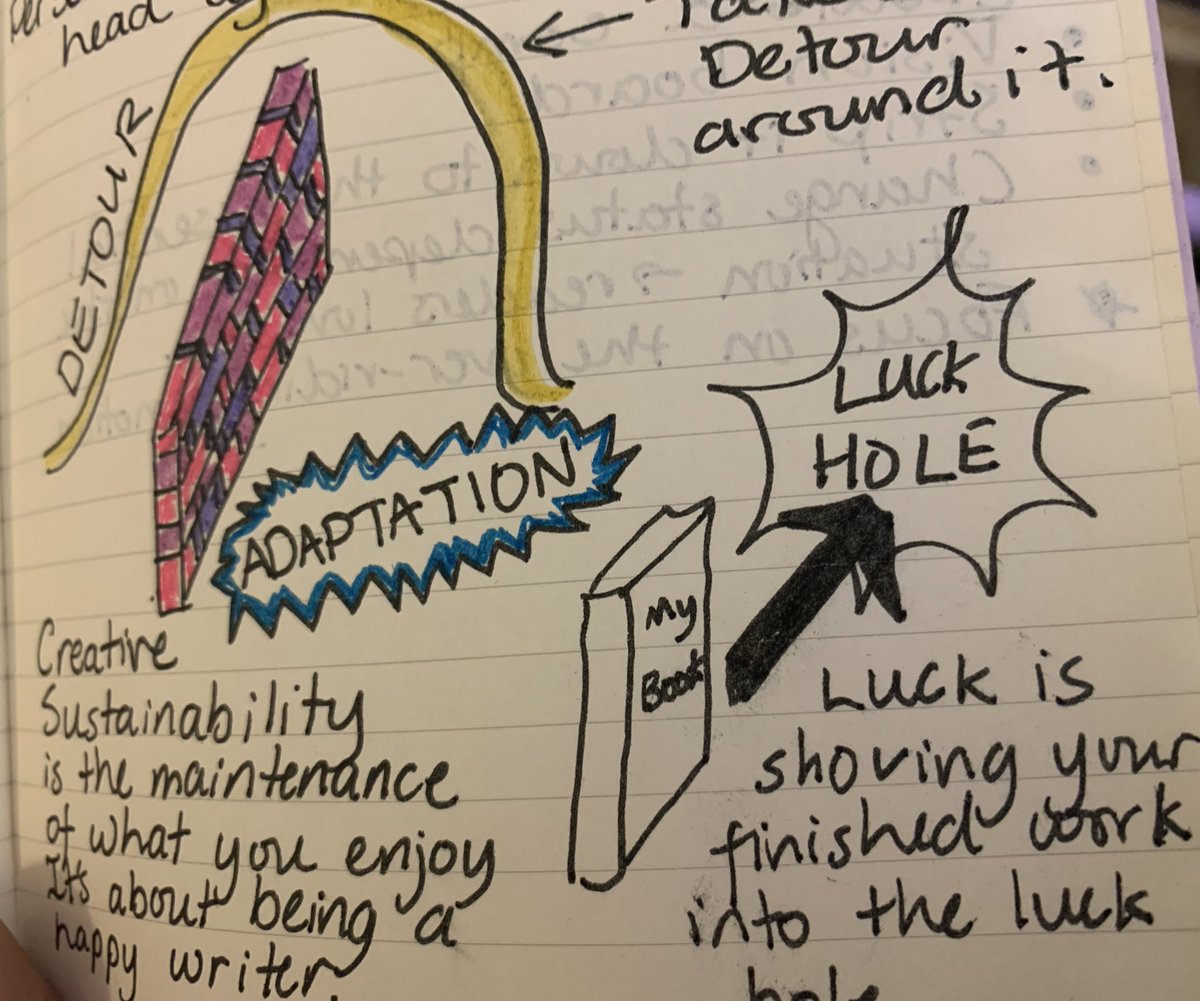 head
Take
Detour
around it.
DETOUR
ADAPTATION
LUCK
HOLE
My
Book
Creative
Sustainability
is the maintenance
of what you enjoy
It's about being a
happy writer.
Luck is
shoving your
finished work
into the luck
hole